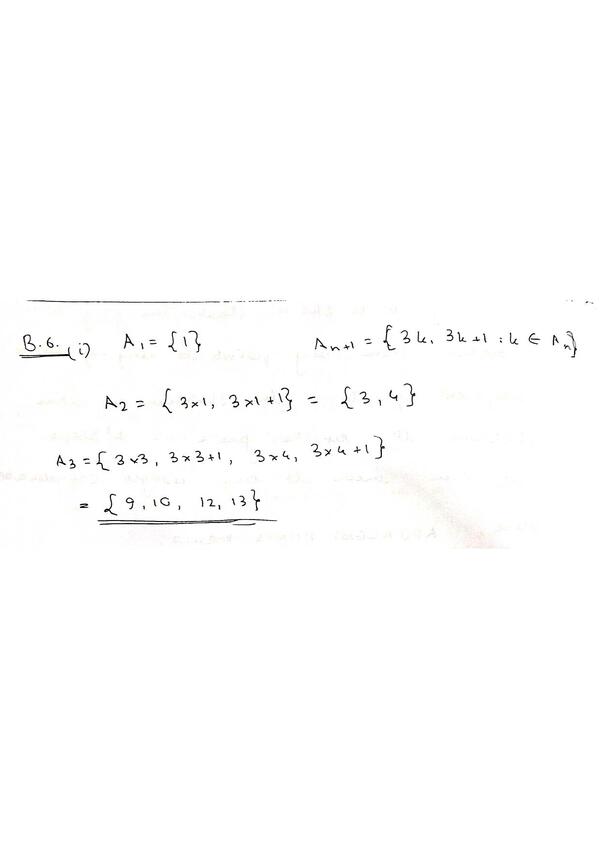 B.6. (i) A1 = {1} An+1 = {3k, 3k+1 : k ∈ An}
A2 = {3×1, 3×1+1} = {3, 4}
A3 = {3×3, 3×3+1, 3×4, 3×4+1}
= {9, 10, 12, 13}